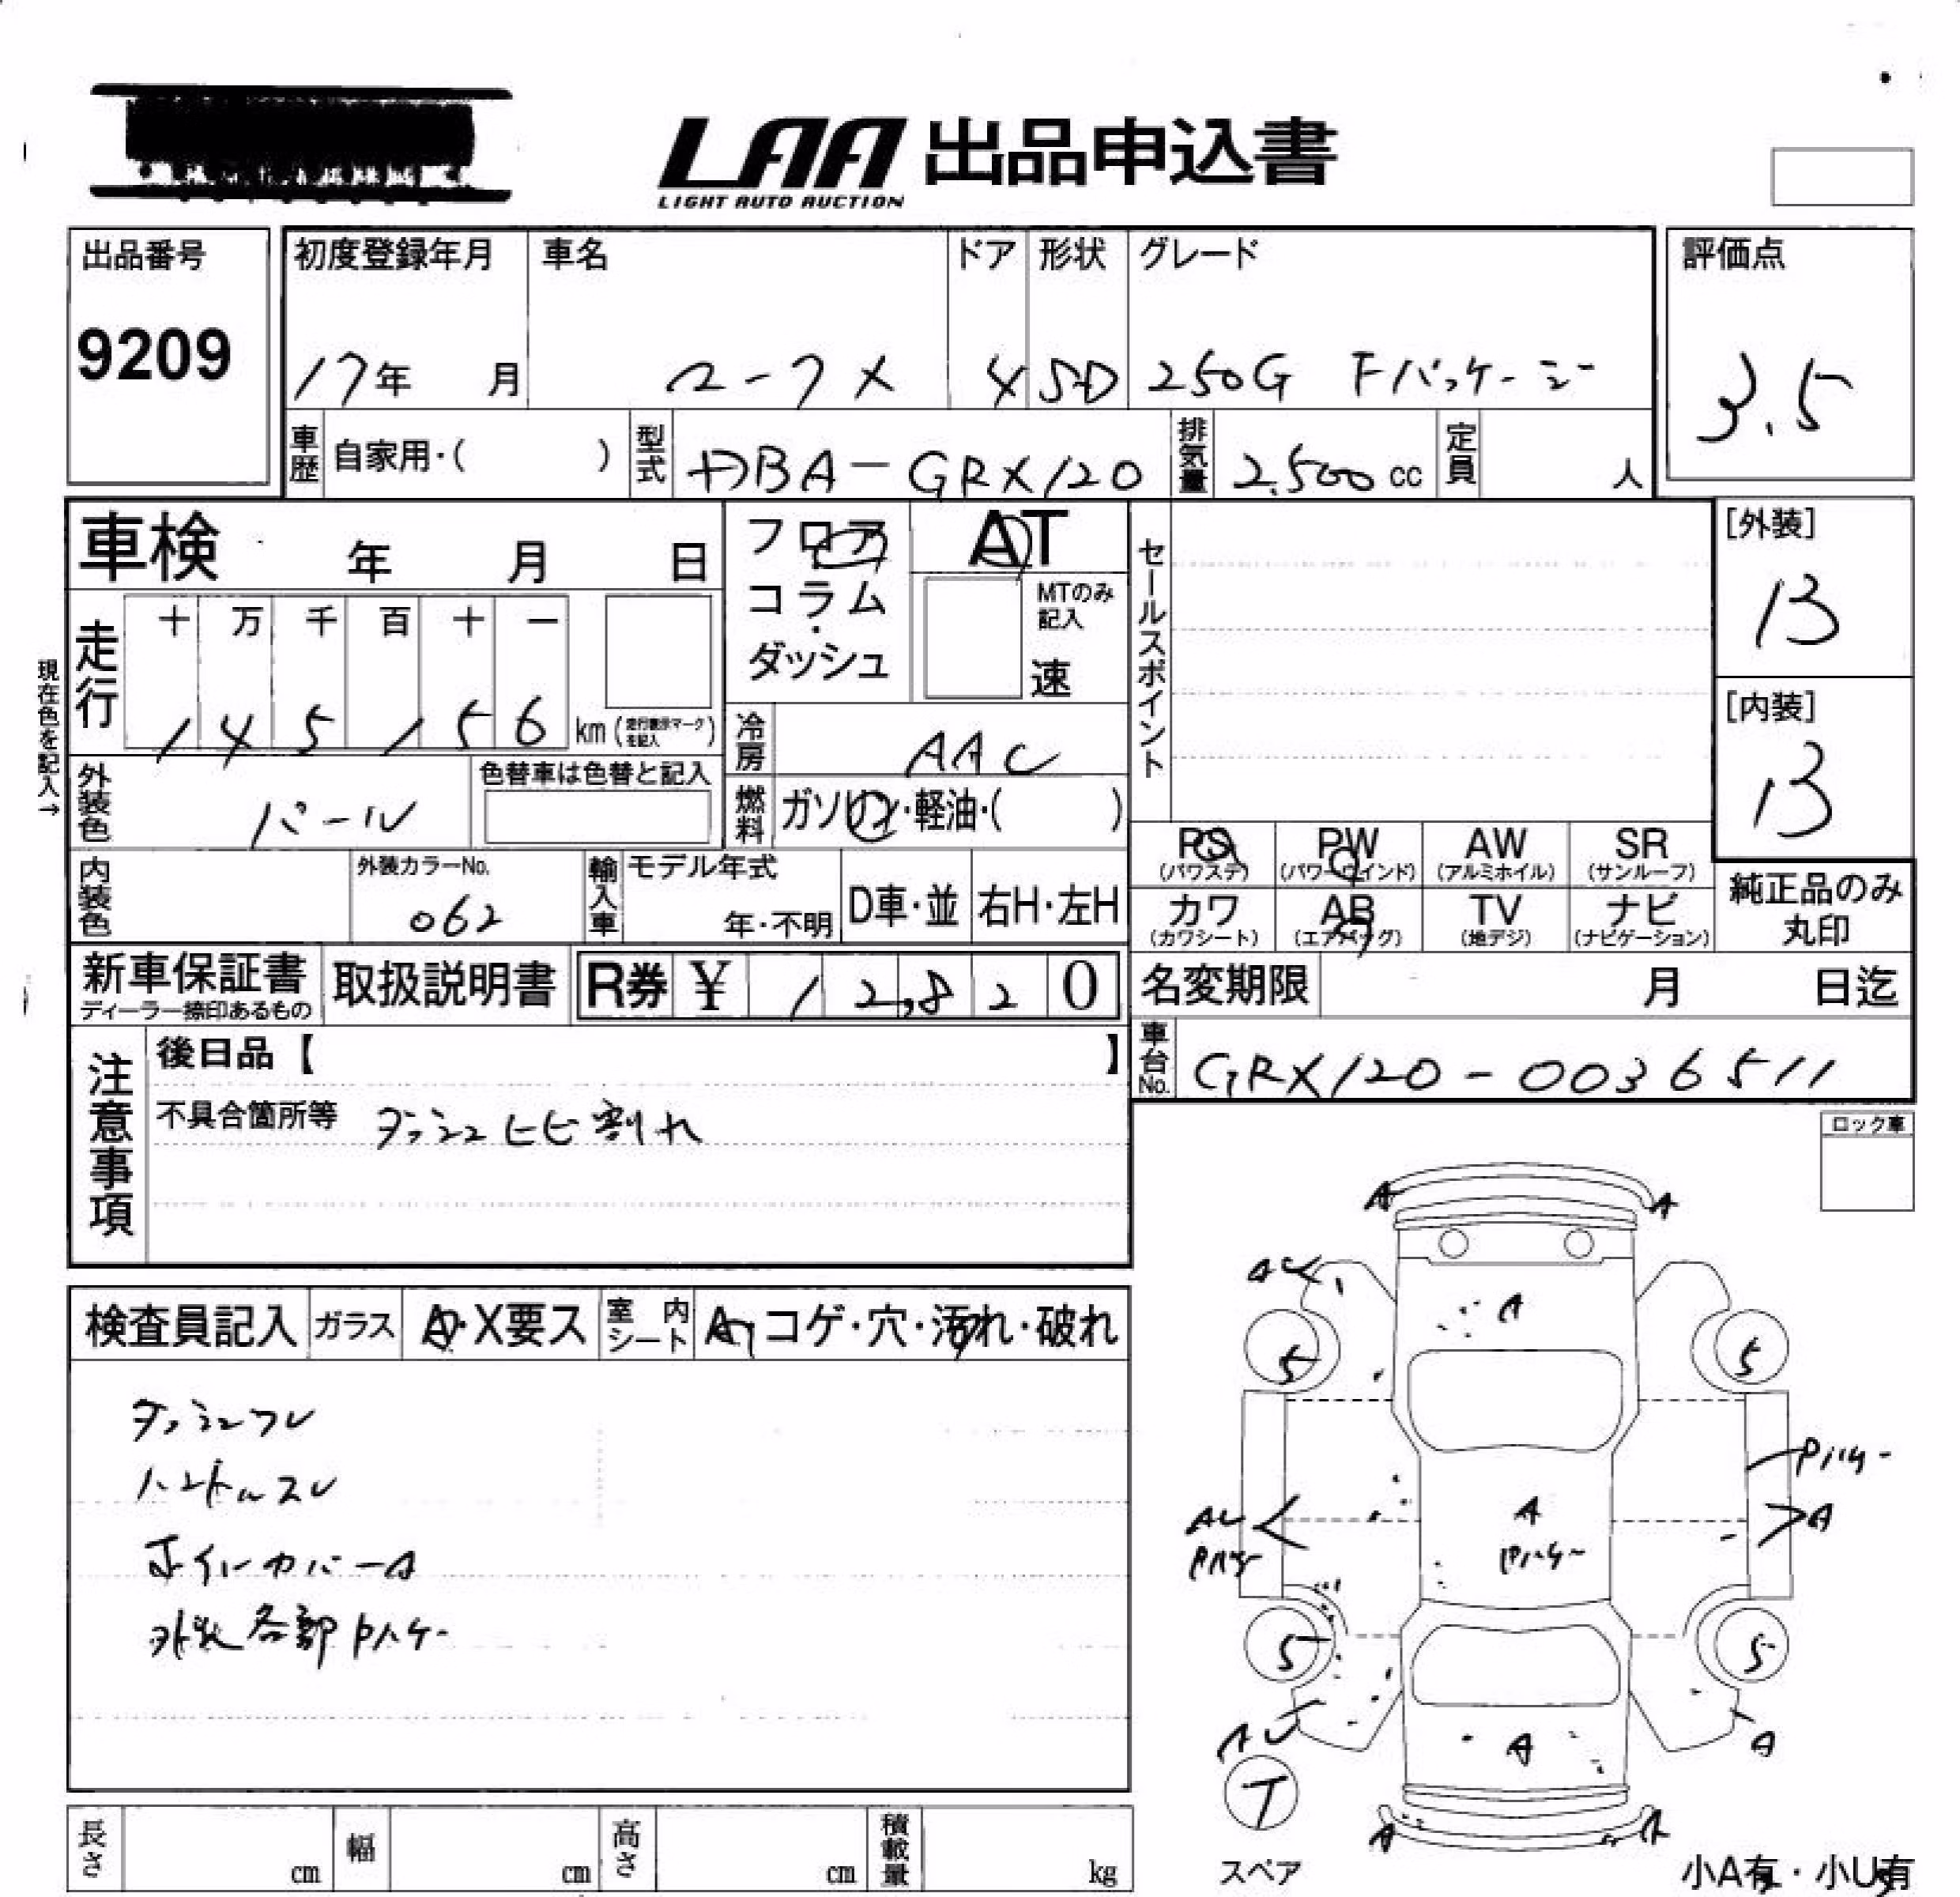 LAA 出品申込書
LIGHT AUTO AUCTION
出品番号
9209
初度登録年月 車名 ドア 形状 グレード
17年 月 マークX 4 SD 250G Fパッケージ
評価点
3.5
車歴 自家用・( ) 型式 DBA-GRX120 排気量 2,500 cc 定員 人
車検 年 月 日
フロア
コラム
・
ダッシュ
AT
MTのみ
記入
速
セールスポイント
[外装]
B
[内装]
B
現在色を記入→
走行 十 万 千 百 十 一
1 4 5 1 5 6 km (走行表示マークを記入)
冷房 AAC
外装色 パール 色替車は色替と記入
燃料 ガソリン・軽油・( )
内装色 外装カラーNo.
062
輸入車 モデル年式
年・不明 D車・並 右H・左H
PS PW AW SR
(パワステ) (パワーウインド) (アルミホイル) (サンルーフ)
カワ AB TV ナビ
(カワシート) (エアバッグ) (地デジ) (ナビゲーション)
純正品のみ
丸印
新車保証書 取扱説明書 R券 ¥ 12,820
ディーラー捺印あるもの
名変期限 月 日迄
車台No. GRX120-0036511
注意事項
後日品【 】
不具合箇所等 ダッシュヒビ割れ
ロック車
検査員記入 ガラス A・X要ス 室内シート A・コゲ・穴・汚れ・破れ
ダッシュワレ
ハンドルスレ
ホイルカバーA
外装各部Pハケー
A A
AU
A
5 5
Pハケー
AU A A
Pハケー Pハケー
5 5
AU A A
T
A A
スペア
小A有・小U有
長さ cm 幅 cm 高さ cm 積載量 kg